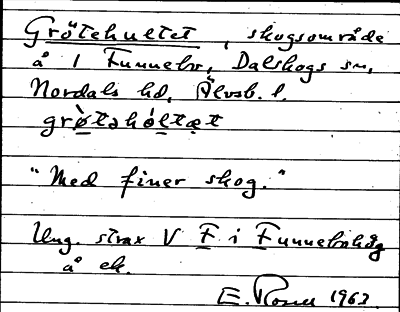 Grötehultet, skogsområde
å 1 Funnebo, Dalskogs sn,
Nordals hd, Älvsb. l.
grø̀təhól̯tæt
"Med finer skog."
Ung. strax V F i Funnebohög
å ek.
E. Rosell 1963.